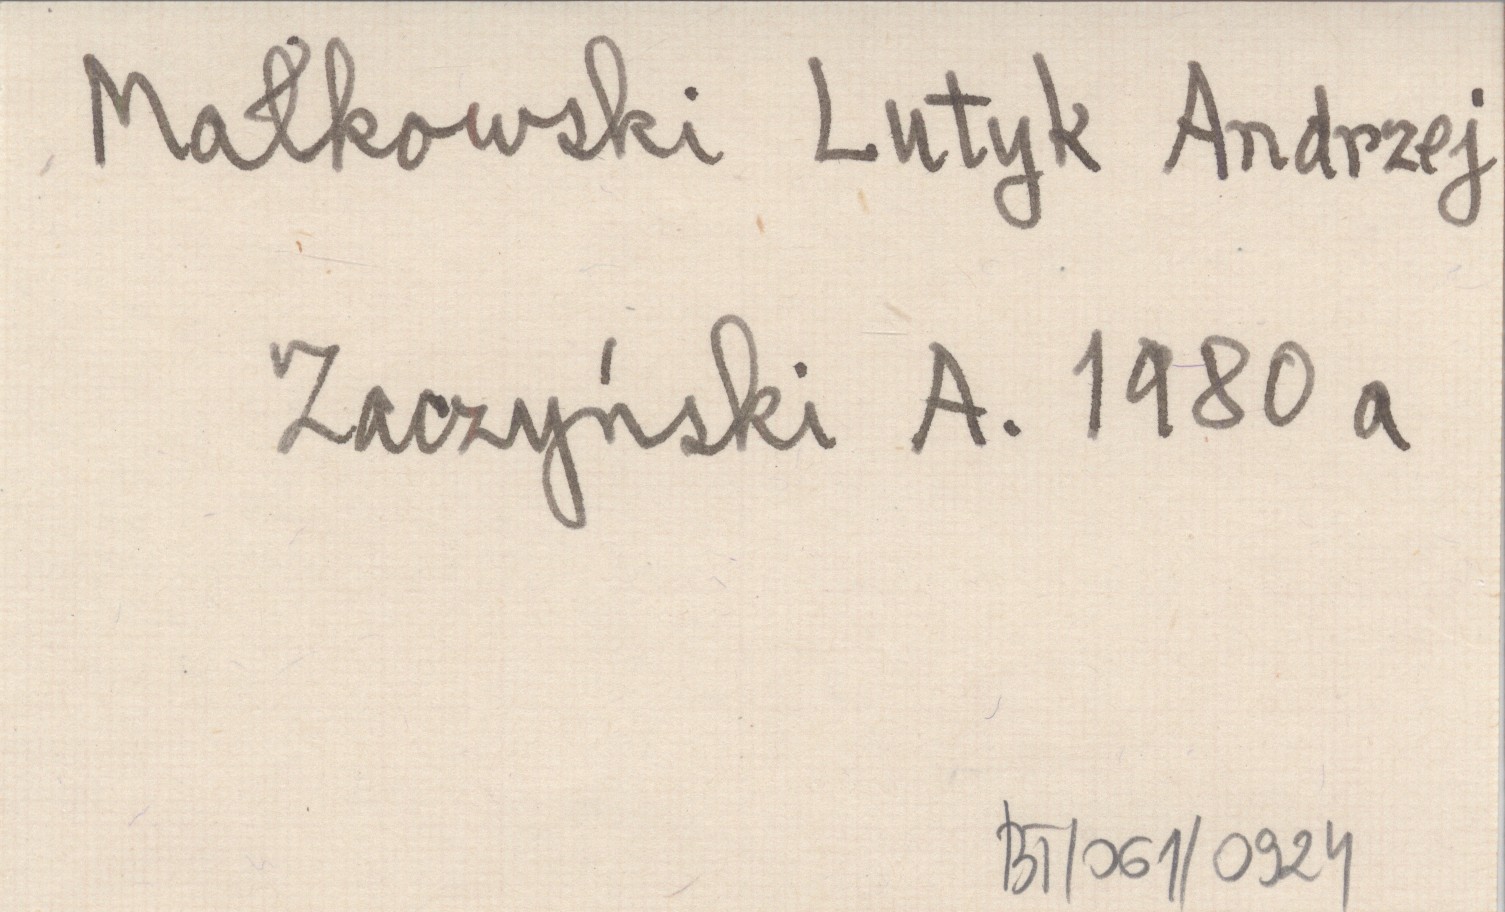 Małkowski Lutyk Andrzej
Zaczyński A. 1980 a
BT/061/0924